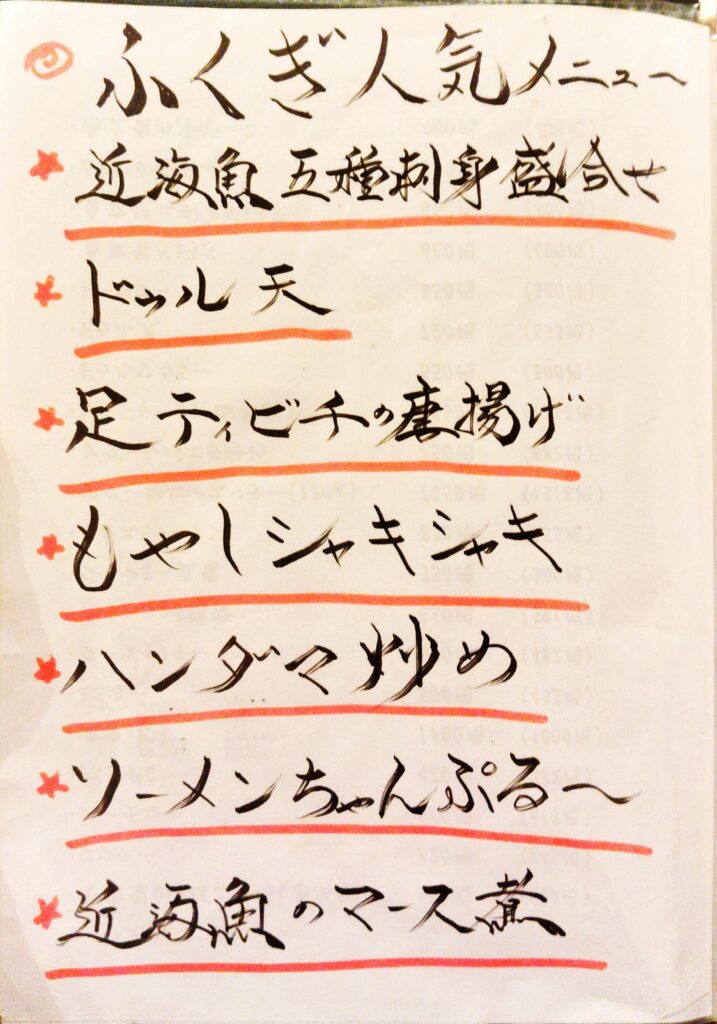 ふくぎ人気メニュー
近海魚五種刺身盛合せ
ドゥル天
足ティビチの唐揚げ
もやしシャキシャキ
ハンダマ炒め
ソーメンちゃんぷる〜
近海魚のマース煮